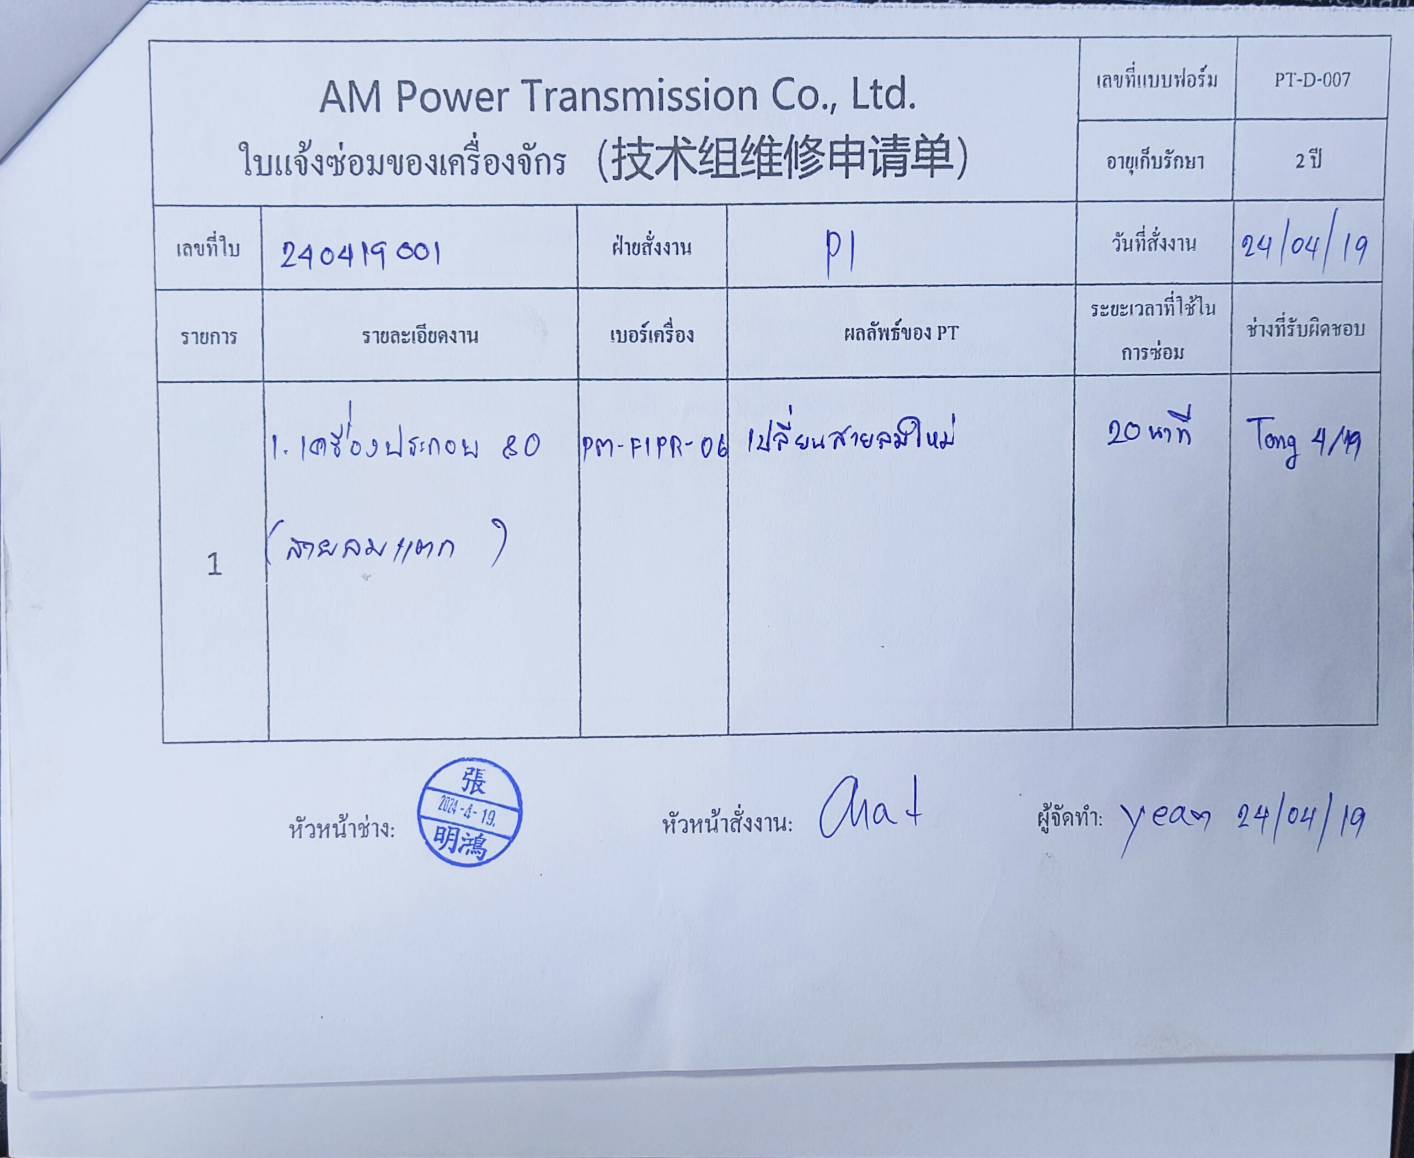 AM Power Transmission Co., Ltd.
ใบแจ้งซ่อมของเครื่องจักร (技术组维修申请单)
เลขที่แบบฟอร์ม PT-D-007
อายุเก็บรักษา 2 ปี
เลขที่ใบ 240419001 ฝ่ายสั่งงาน P1 วันที่สั่งงาน 24/04/19
รายการ รายละเอียดงาน เบอร์เครื่อง ผลลัพธ์ของ PT ระยะเวลาที่ใช้ใน ช่างที่รับผิดชอบ
การซ่อม
1. เครื่องประกอบ 80 PM-F1PR-06 เปลี่ยนสายลมใหม่ 20 นาที Tong 4/19
(สายลมแตก)
1
หัวหน้าช่าง: 張 2024-4-19. 明鴻 หัวหน้าสั่งงาน: Chat ผู้จัดทำ: yean 24/04/19